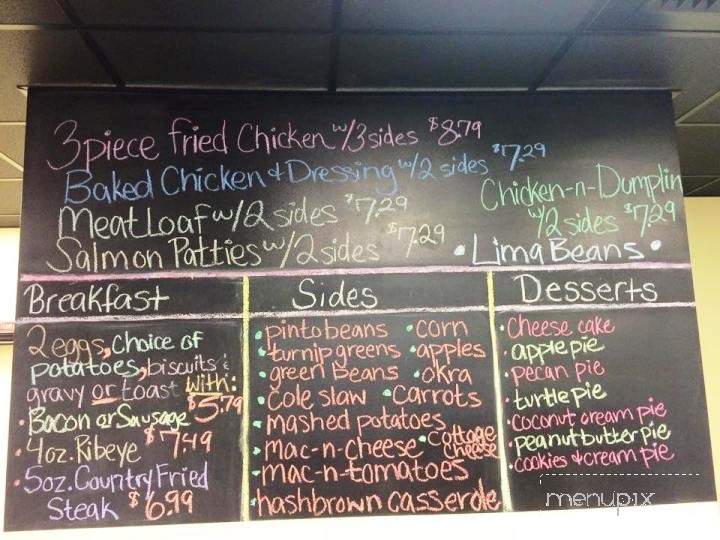 3 piece fried Chicken w/3 sides $8.79
Baked Chicken & Dressing w/2 sides $7.29
Meat Loaf w/2 sides $7.29
Salmon Patties w/2 sides $7.29
Chicken-n-Dumplin
w/2 sides $7.29
• Lima Beans •
Breakfast
2 eggs, choice of
potatoes, biscuits &
gravy or toast with:
• Bacon or Sausage $5.79
• 4oz. Ribeye $7.49
• 5oz. Country Fried
Steak $6.99
Sides
• pinto beans • corn
• turnip greens • apples
• green beans • okra
• cole slaw • Carrots
• mashed potatoes
• mac-n-cheese • cottage
cheese
• mac-n-tomatoes
• hashbrown casserole
Desserts
• Cheese cake
• apple pie
• pecan pie
• turtle pie
• coconut cream pie
• peanut butter pie
• cookies & cream pie
menupix